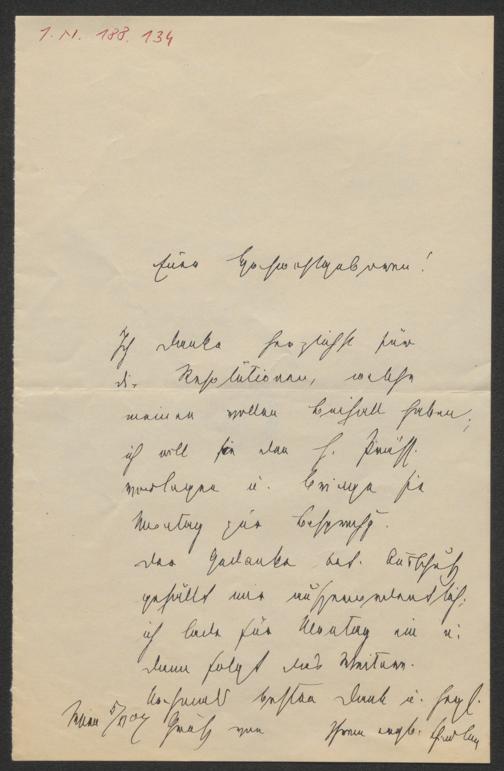 I. N. 188.134
Euer Hochwohlgeboren!
Ich danke herzlichst für
die Resolutionen, welche
meinen vollen Beifall haben;
ich will sie den H. Präss.
vorlegen u. bringe sie
Montag zur Besprechg.
Der Gedanke bet. Ausschuß
gefällt mir außerordentlich;
ich lade für Montag ein u.
dann folgt das Weitere.
Nochmals besten Dank u. herzl.
Gruß von Ihrem ergb.
Wien